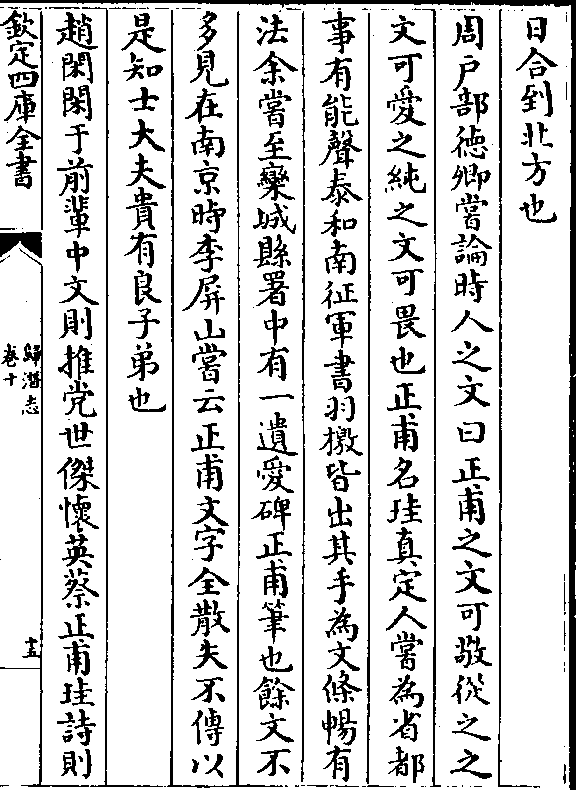 日合到北方也
周戶部徳卿嘗論時人之文曰正甫之文可敬從之之
文可愛之純之文可畏也正甫名珪真定人嘗為省都
事有能聲泰和南征軍書羽檄皆出其手為文條暢有
法余嘗至欒城縣署中有一遺愛碑正甫筆也餘文不
多見在南京時李屏山嘗云正甫文字全散失不傳以
是知士大夫貴有良子弟也
趙閑閑于前輩中文則推党世傑懷英蔡正甫珪詩則
欽定四庫全書
歸潛志
卷十
十五